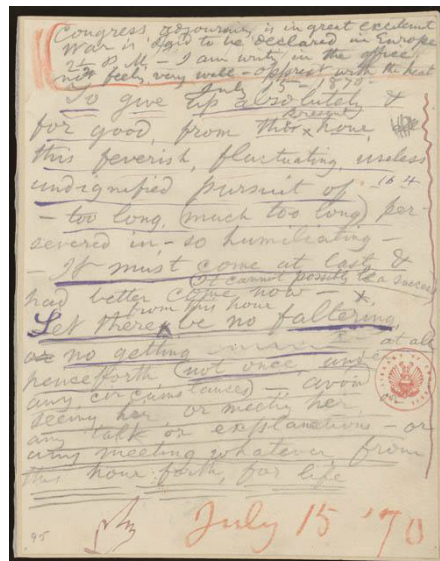 Congress adjourning is in great excitement
War is said to be declared in Europe
2½ P. M. – I am writing in the office
not feeling very well – opprest with the heat
July 15 – 1870 –
To give up absolutely &
for good, from this present hour,
this feverish, fluctuating, useless
undignified pursuit of 16.4
– too long, (much too long) per-
severed in – so humiliating –
– It must come at last &
had better come now –
(It cannot possibly be a success)
Let there from this hour be no faltering,
no getting at all
henceforth, (not once, under
any circumstances) – avoid
seeing her, or meeting her,
any talk or explanations – or
any meeting whatever, from
this hour forth, for life
July 15 '70
95